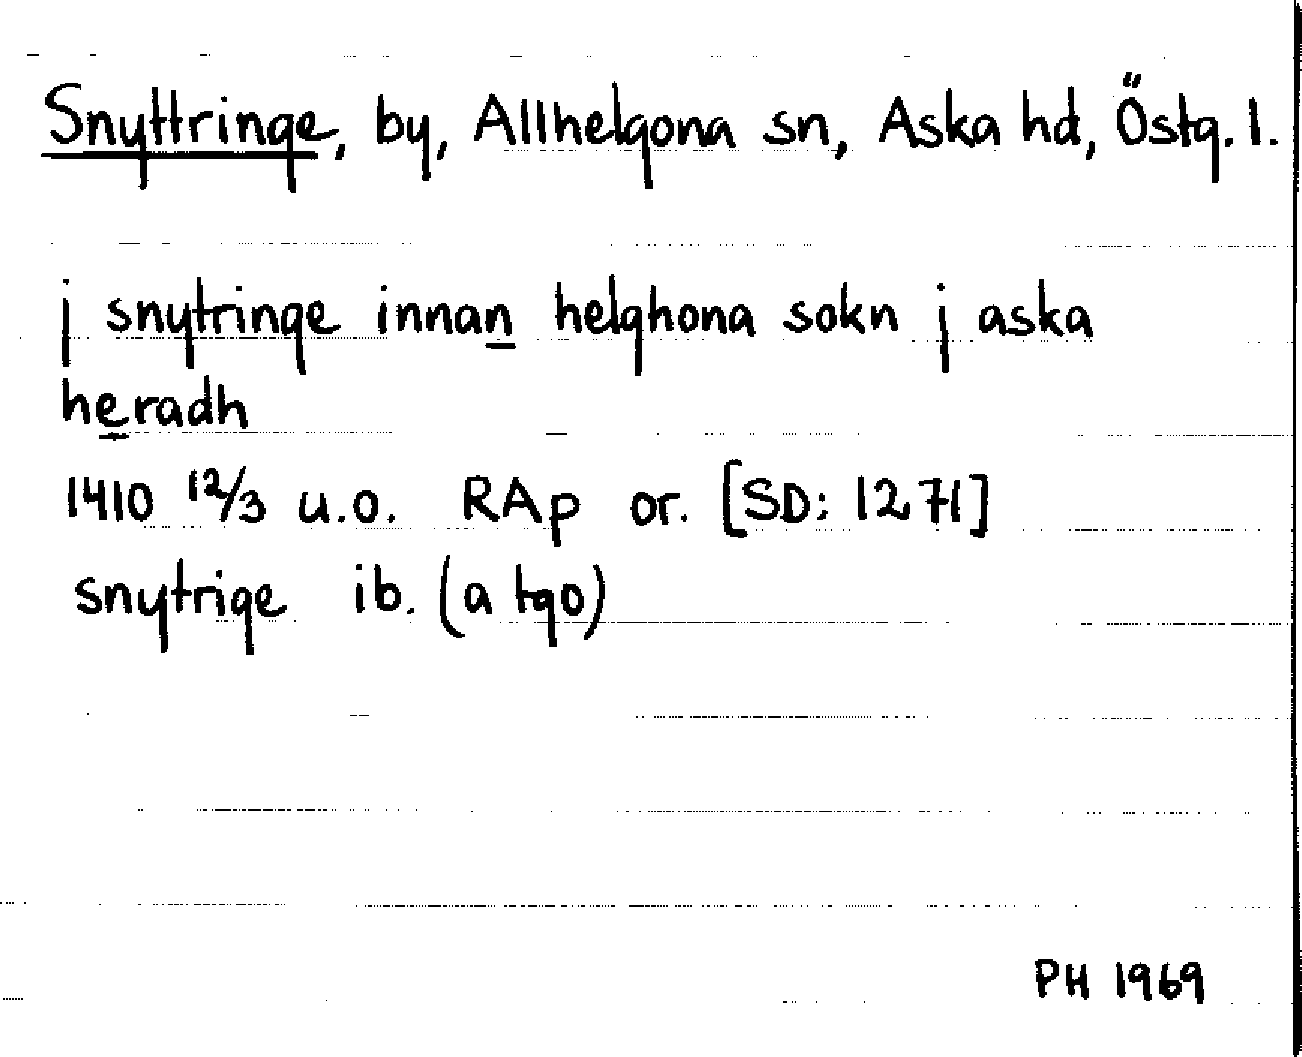 Snyttringe, by, Allhelgona sn, Aska hd, Östg. l.
j snytringe innan helghona sokn j aska
heradh
1410 12/3 u.o. RAp or. [SD: 1271]
snytrige ib. (a tgo)
PH 1969